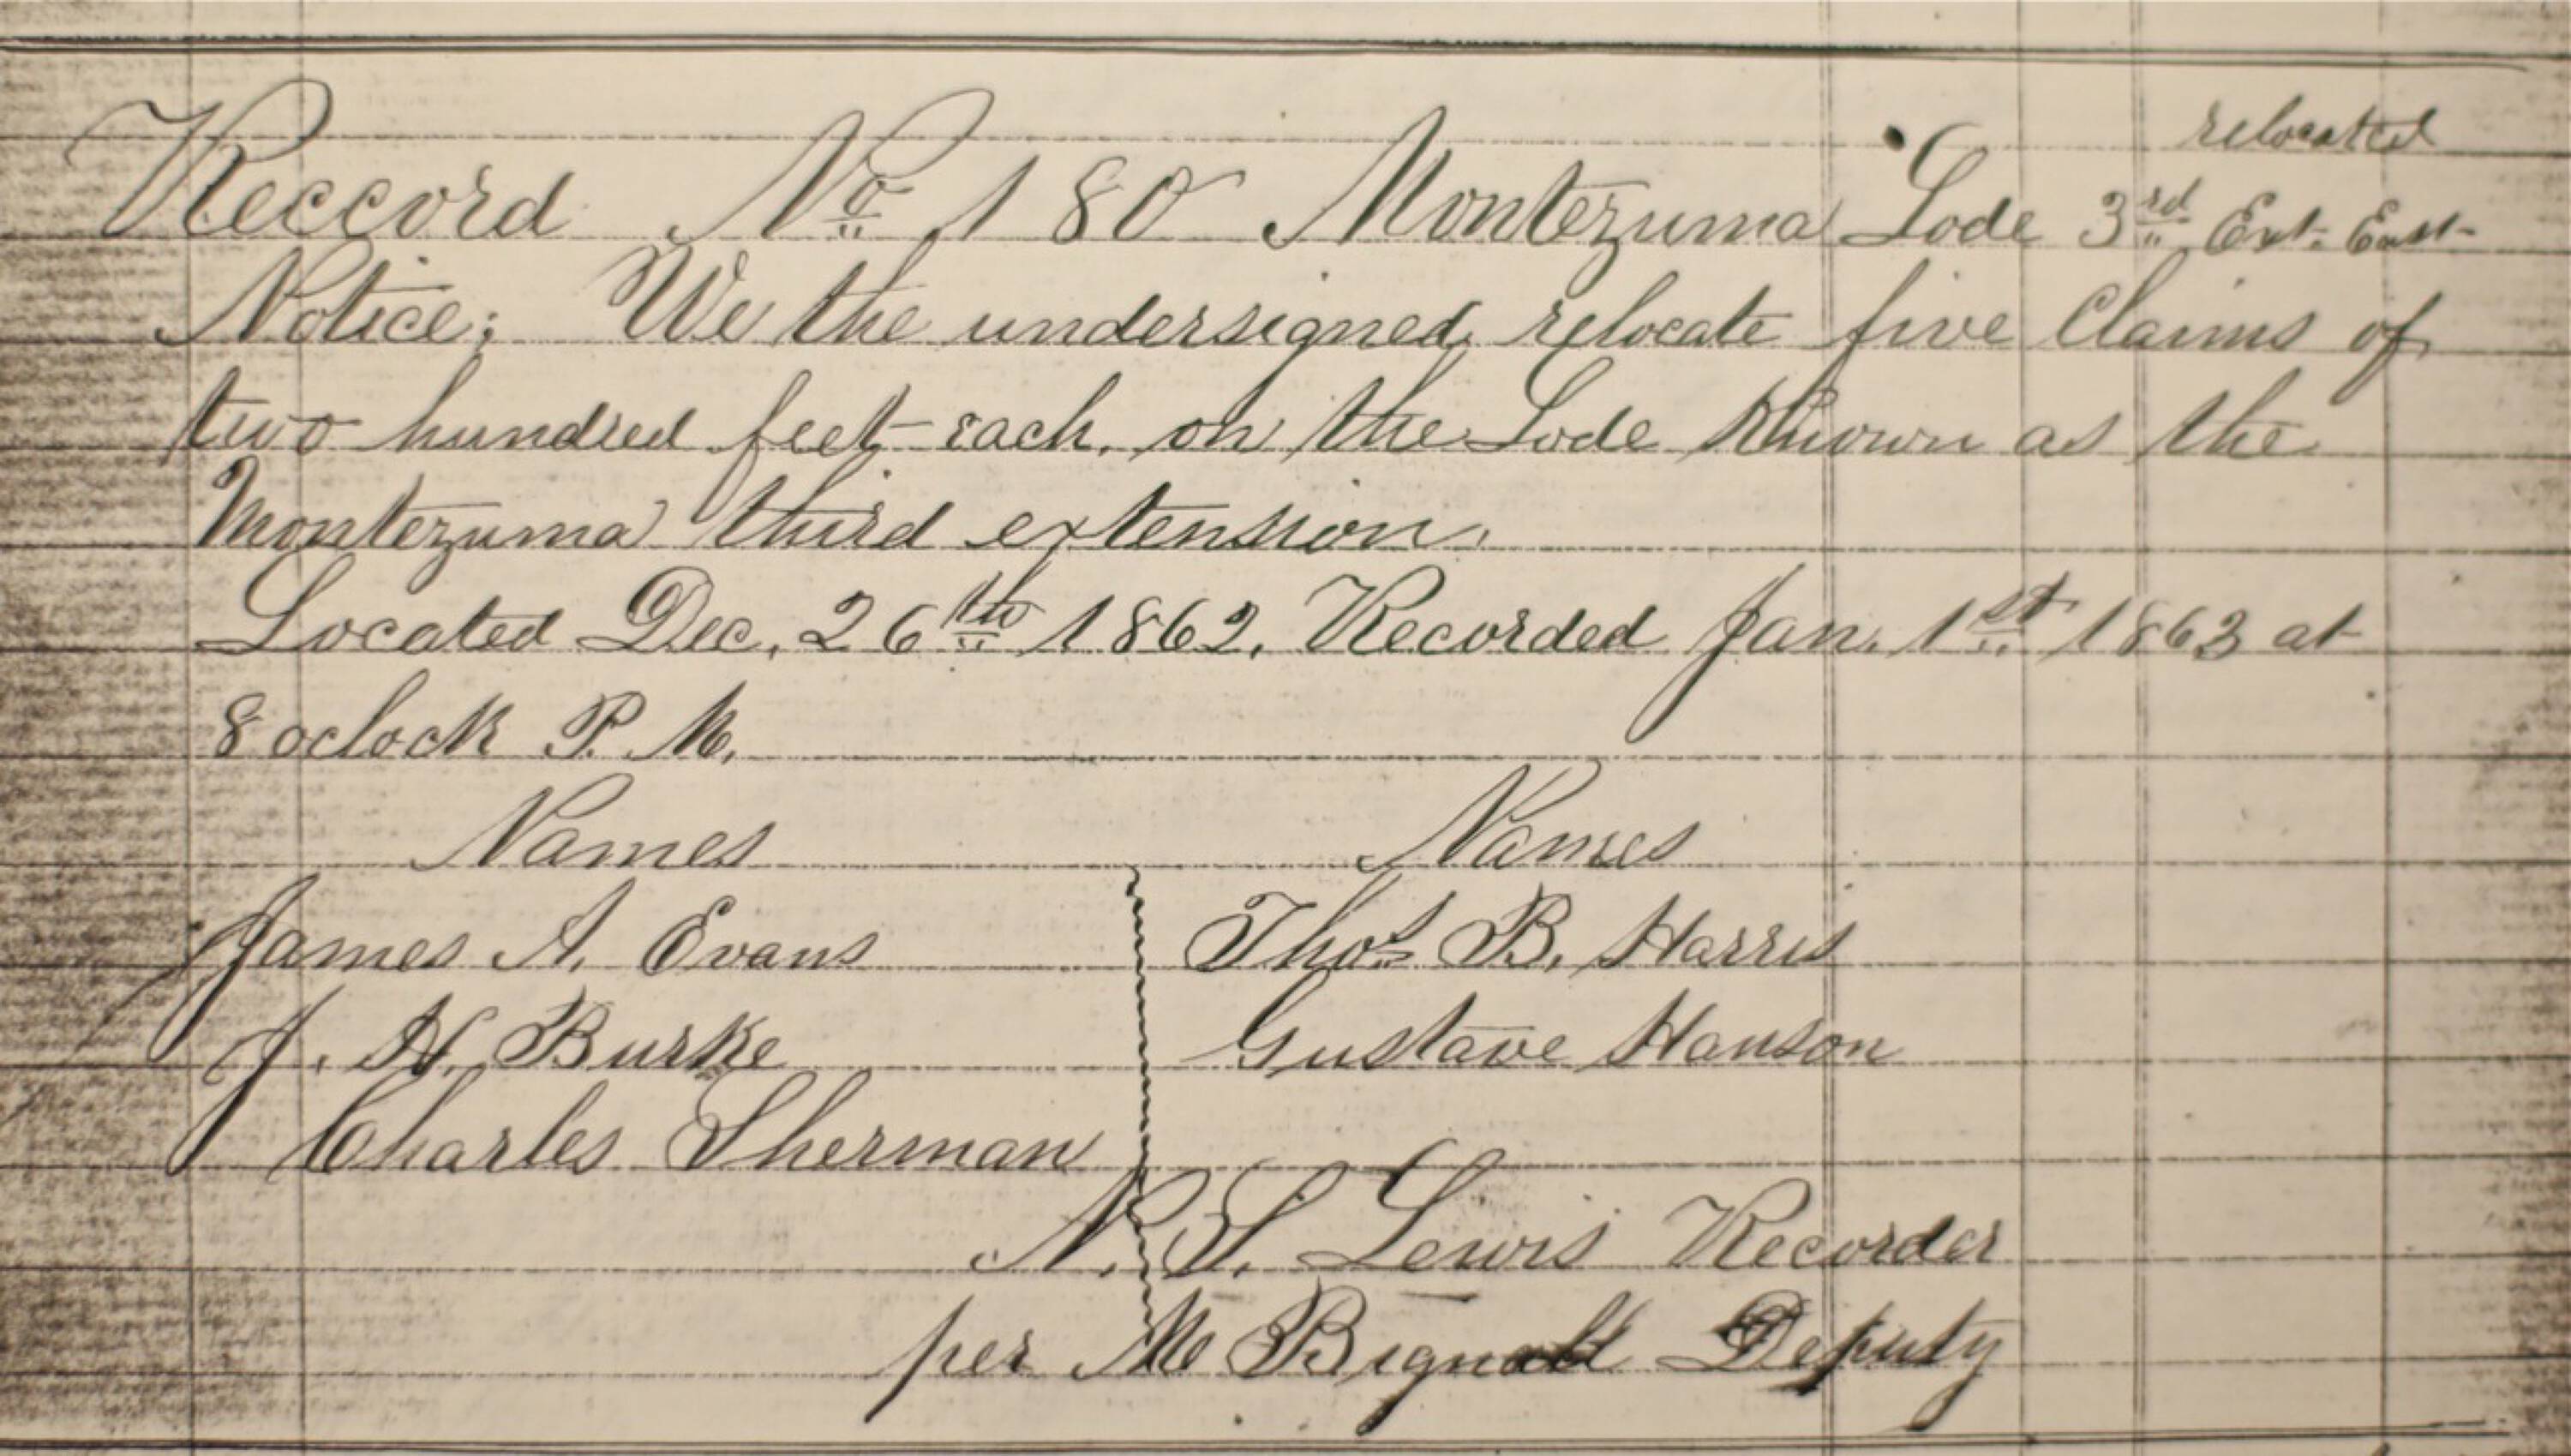 relocated
Reccord No 180 Montezuma Lode 3rd Ext. East
Notice: We the undersigned relocate five Claims of
two hundred feet each, on the Lode Known as the
Montezuma third extension.
Located Dec. 26th 1862. Recorded Jan. 1st 1863 at
8 oclock P. M.
Names Names
James A. Evans Thos B. Harris
J. H. Burke Gustave Hanson
Charles Sherman
N. S. Lewis Recorder
per M Bignall Deputy